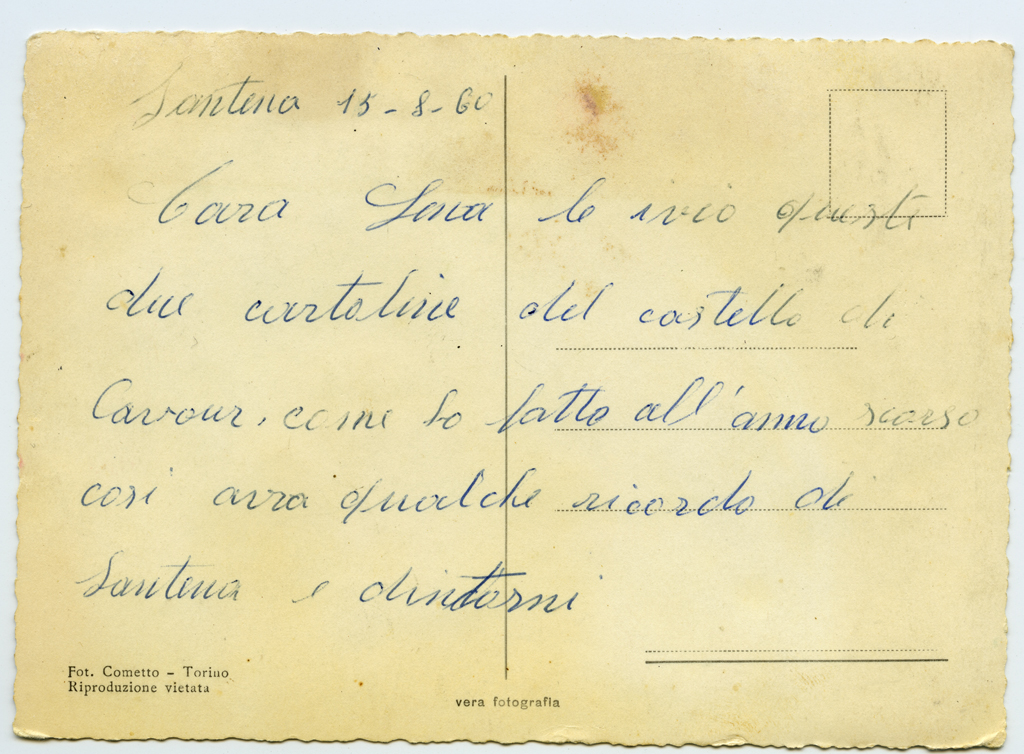 Santena 15-8-60
Cara Lena le ivio questi
due cartoline del castello di
Cavour, come ho fatto all'anno scorso
cosi avra qualche ricordo di
Santena e dintorni
Fot. Cometto - Torino
Riproduzione vietata
vera fotografia